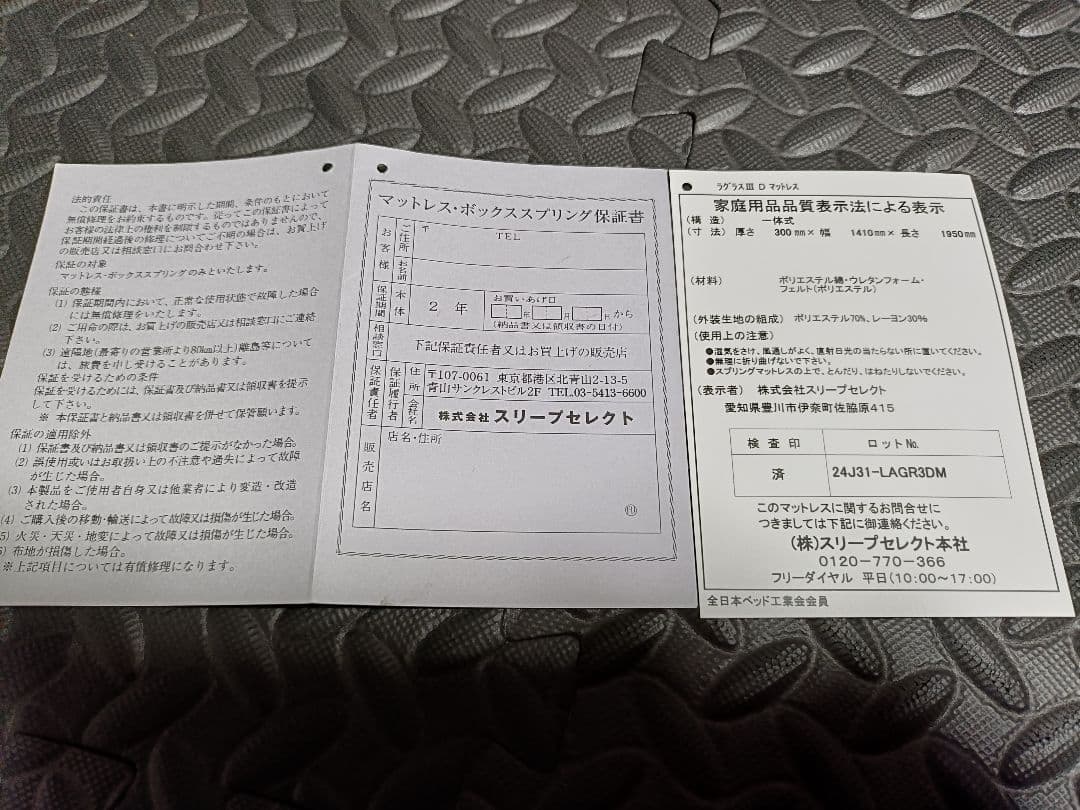 法的責任
この保証書は、本書に明示した期間、条件のもとにおいて
無償修理をお約束するものです。従ってこの保証書によって
お客様の法律上の権利を制限するものではありませんので、
保証期間経過後の修理についてご不明の場合は、お買上げ
の販売店又は相談窓口にお問合わせ下さい。
保証の対象
マットレス・ボックススプリングのみといたします。
保証の態様
(1) 保証期間内において、正常な使用状態で故障した場合
には無償修理をいたします。
(2) ご用命の際は、お買上げの販売店又は相談窓口にご連絡
下さい。
(3) 遠隔地(最寄りの営業所より80km以上)離島等について
は、旅費を申し受けることがあります。
保証を受けるための条件
保証を受けるためには、保証書及び納品書又は領収書を提示
して下さい。
※ 本保証書と納品書又は領収書を併せて保管願います。
保証の適用除外
(1) 保証書及び納品書又は領収書のご提示がなかった場合。
(2) 誤使用或いはお取扱い上の不注意や過失によって故障
が生じた場合。
(3) 本製品をご使用者自身又は他業者により変造・改造
された場合。
(4) ご購入後の移動・輸送によって故障又は損傷が生じた場合。
5) 火災・天災・地変によって故障又は損傷が生じた場合。
) 布地が損傷した場合。
※上記項目については有償修理になります。
マットレス・ボックススプリング保証書
お客様
ご住所
〒
TEL
お名前
保証期間
本体
2 年
お買いあげ日
年 月 日 から
(納品書又は領収書の日付)
相談窓口
下記保証責任者又はお買上げの販売店
保証責任者
保証履行者
住所
〒107-0061 東京都港区北青山2-13-5
青山サンクレストビル2F TEL.03-5413-6600
会社名
株式会社 スリープセレクト
販売店名
店名・住所
㊞
ラグラスⅢ D マットレス
家庭用品品質表示法による表示
(構 造) 一体式
(寸 法) 厚さ 300mm× 幅 1410mm× 長さ 1950mm
(材料) ポリエステル綿・ウレタンフォーム・
フェルト(ポリエステル)
(外装生地の組成) ポリエステル70%、レーヨン30%
(使用上の注意)
●湿気をさけ、風通しがよく、直射日光の当たらない所に置いてください。
●無理に折り曲げないで下さい。
●スプリングマットレスの上で、とんだり、はねたりしないでください。
(表示者) 株式会社スリープセレクト
愛知県豊川市伊奈町佐脇原415
検 査 印 ロットNo.
済 24J31-LAGR3DM
このマットレスに関するお問合せに
つきましては下記に御連絡ください。
(株)スリープセレクト本社
0120-770-366
フリーダイヤル 平日(10:00~17:00)
全日本ベッド工業会会員